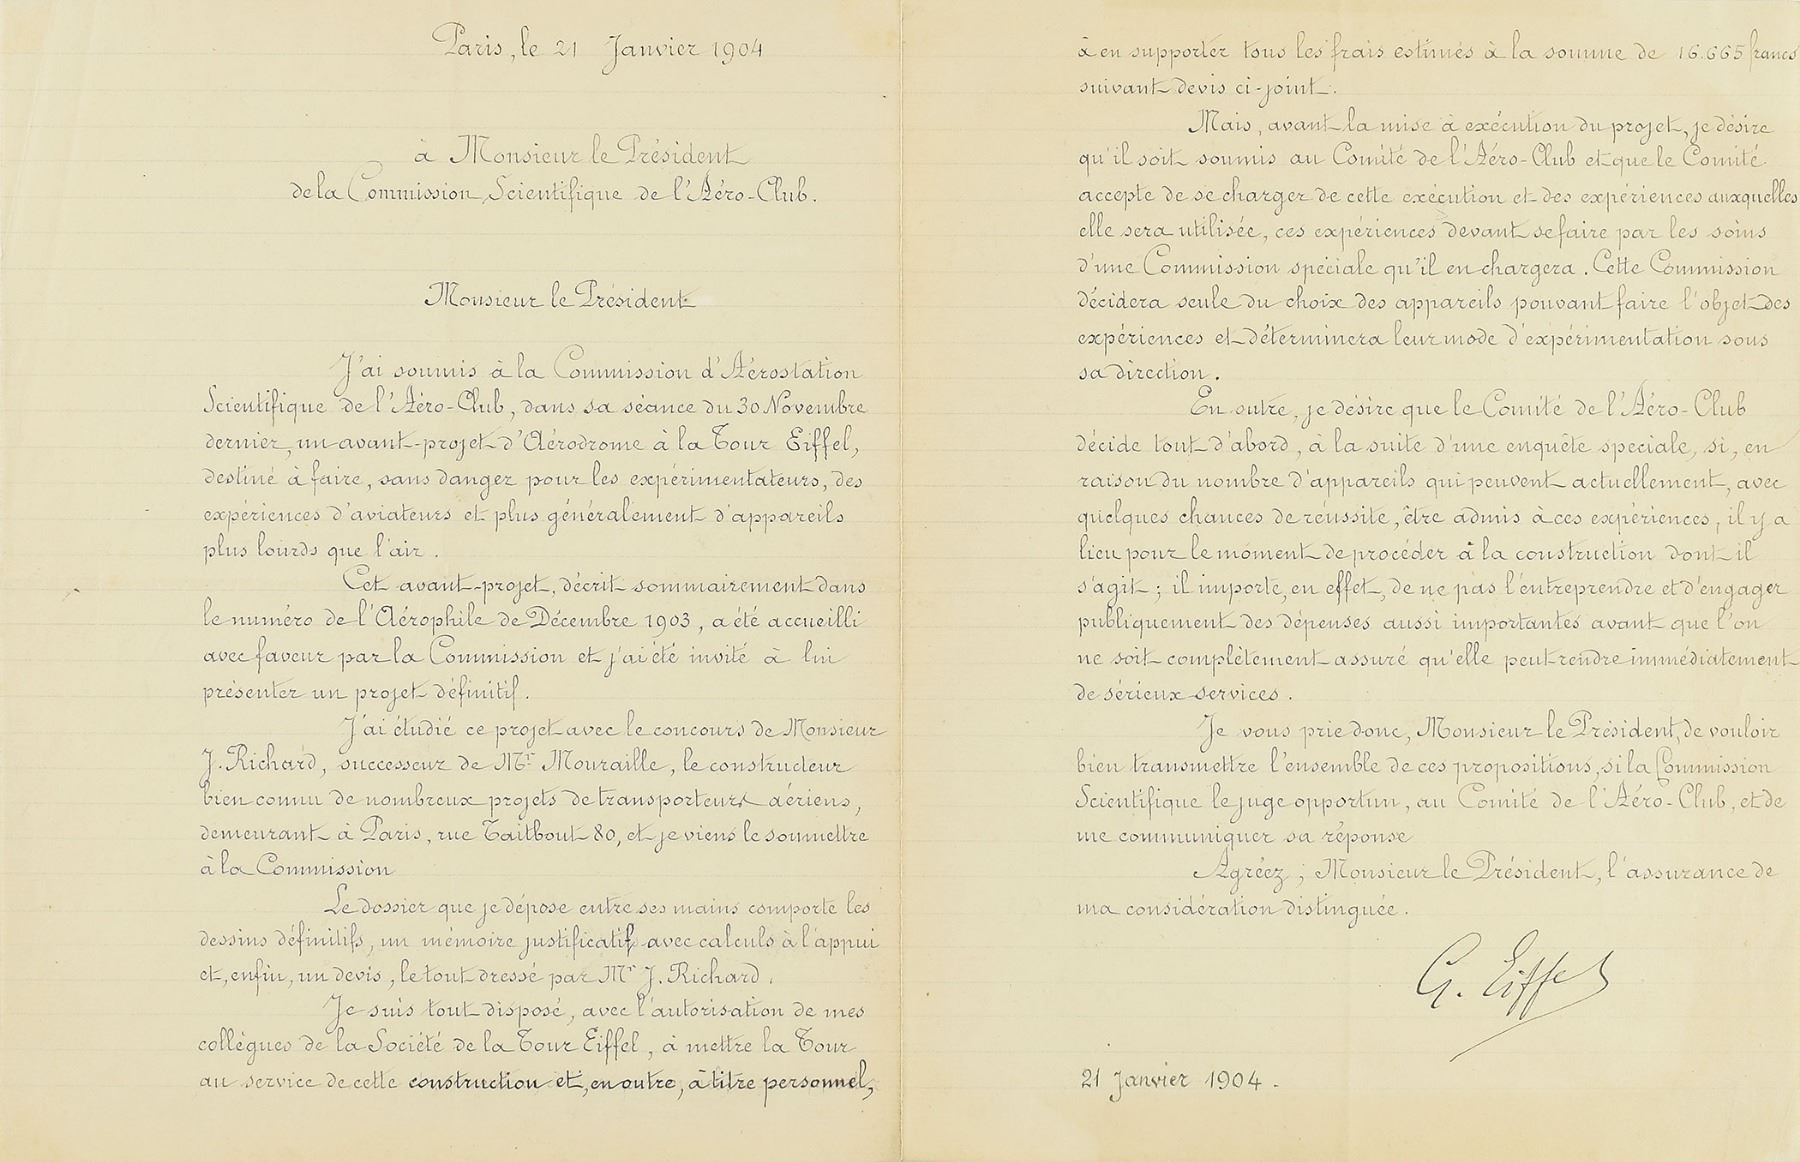 Paris, le 21 Janvier 1904
à Monsieur le Président
de la Commission Scientifique de l'Aéro-Club.
Monsieur le Président
J'ai soumis à la Commission d'Aérostation
Scientifique de l'Aéro-Club, dans sa séance du 30 Novembre
dernier, un avant-projet d'Aérodrome à la Tour Eiffel,
destiné à faire, sans danger pour les expérimentateurs, des
expériences d'aviateurs et plus généralement d'appareils
plus lourds que l'air.
Cet avant-projet, décrit sommairement dans
le numéro de l'Aérophile de Décembre 1903, a été accueilli
avec faveur par la Commission et j'ai été invité à lui
présenter un projet définitif.
J'ai étudié ce projet avec le concours de Monsieur
J. Richard, successeur de Mr Mouraille, le constructeur
bien connu de nombreux projets de transporteurs aériens,
demeurant à Paris, rue Taitbout 80, et je viens le soumettre
à la Commission
Le dossier que je dépose entre ses mains comporte les
dessins définitifs, un mémoire justificatif avec calculs à l'appui
et, enfin, un devis, le tout dressé par Mr J. Richard.
Je suis tout disposé, avec l'autorisation de mes
collègues de la Société de la Tour Eiffel, à mettre la Tour
au service de cette construction et, en outre, à titre personnel,
à en supporter tous les frais estimés à la somme de 16.665 francs
suivant devis ci-joint.
Mais, avant la mise à exécution du projet, je désire
qu'il soit soumis au Comité de l'Aéro-Club et que le Comité
accepte de se charger de cette exécution et des expériences auxquelles
elle sera utilisée, ces expériences devant se faire par les soins
d'une Commission spéciale qu'il en chargera. Cette Commission
décidera seule du choix des appareils pouvant faire l'objet des
expériences et déterminera leur mode d'expérimentation sous
sa direction.
En outre, je désire que le Comité de l'Aéro-Club
décide tout d'abord, à la suite d'une enquête speciale, si, en
raison du nombre d'appareils qui peuvent actuellement, avec
quelques chances de réussite, être admis à ces expériences, il y a
lieu pour le moment de procéder à la construction dont il
s'agit ; il importe, en effet, de ne pas l'entreprendre et d'engager
publiquement des dépenses aussi importantes avant que l'on
ne soit complètement assuré qu'elle peut rendre immédiatement
de sérieux services.
Je vous prie donc, Monsieur le Président, de vouloir
bien transmettre l'ensemble de ces propositions, si la Commission
Scientifique le juge opportun, au Comité de l'Aéro-Club, et de
me communiquer sa réponse
Agréez ; Monsieur le Président, l'assurance de
ma considération distinguée.
G. Eiffel
21 Janvier 1904.